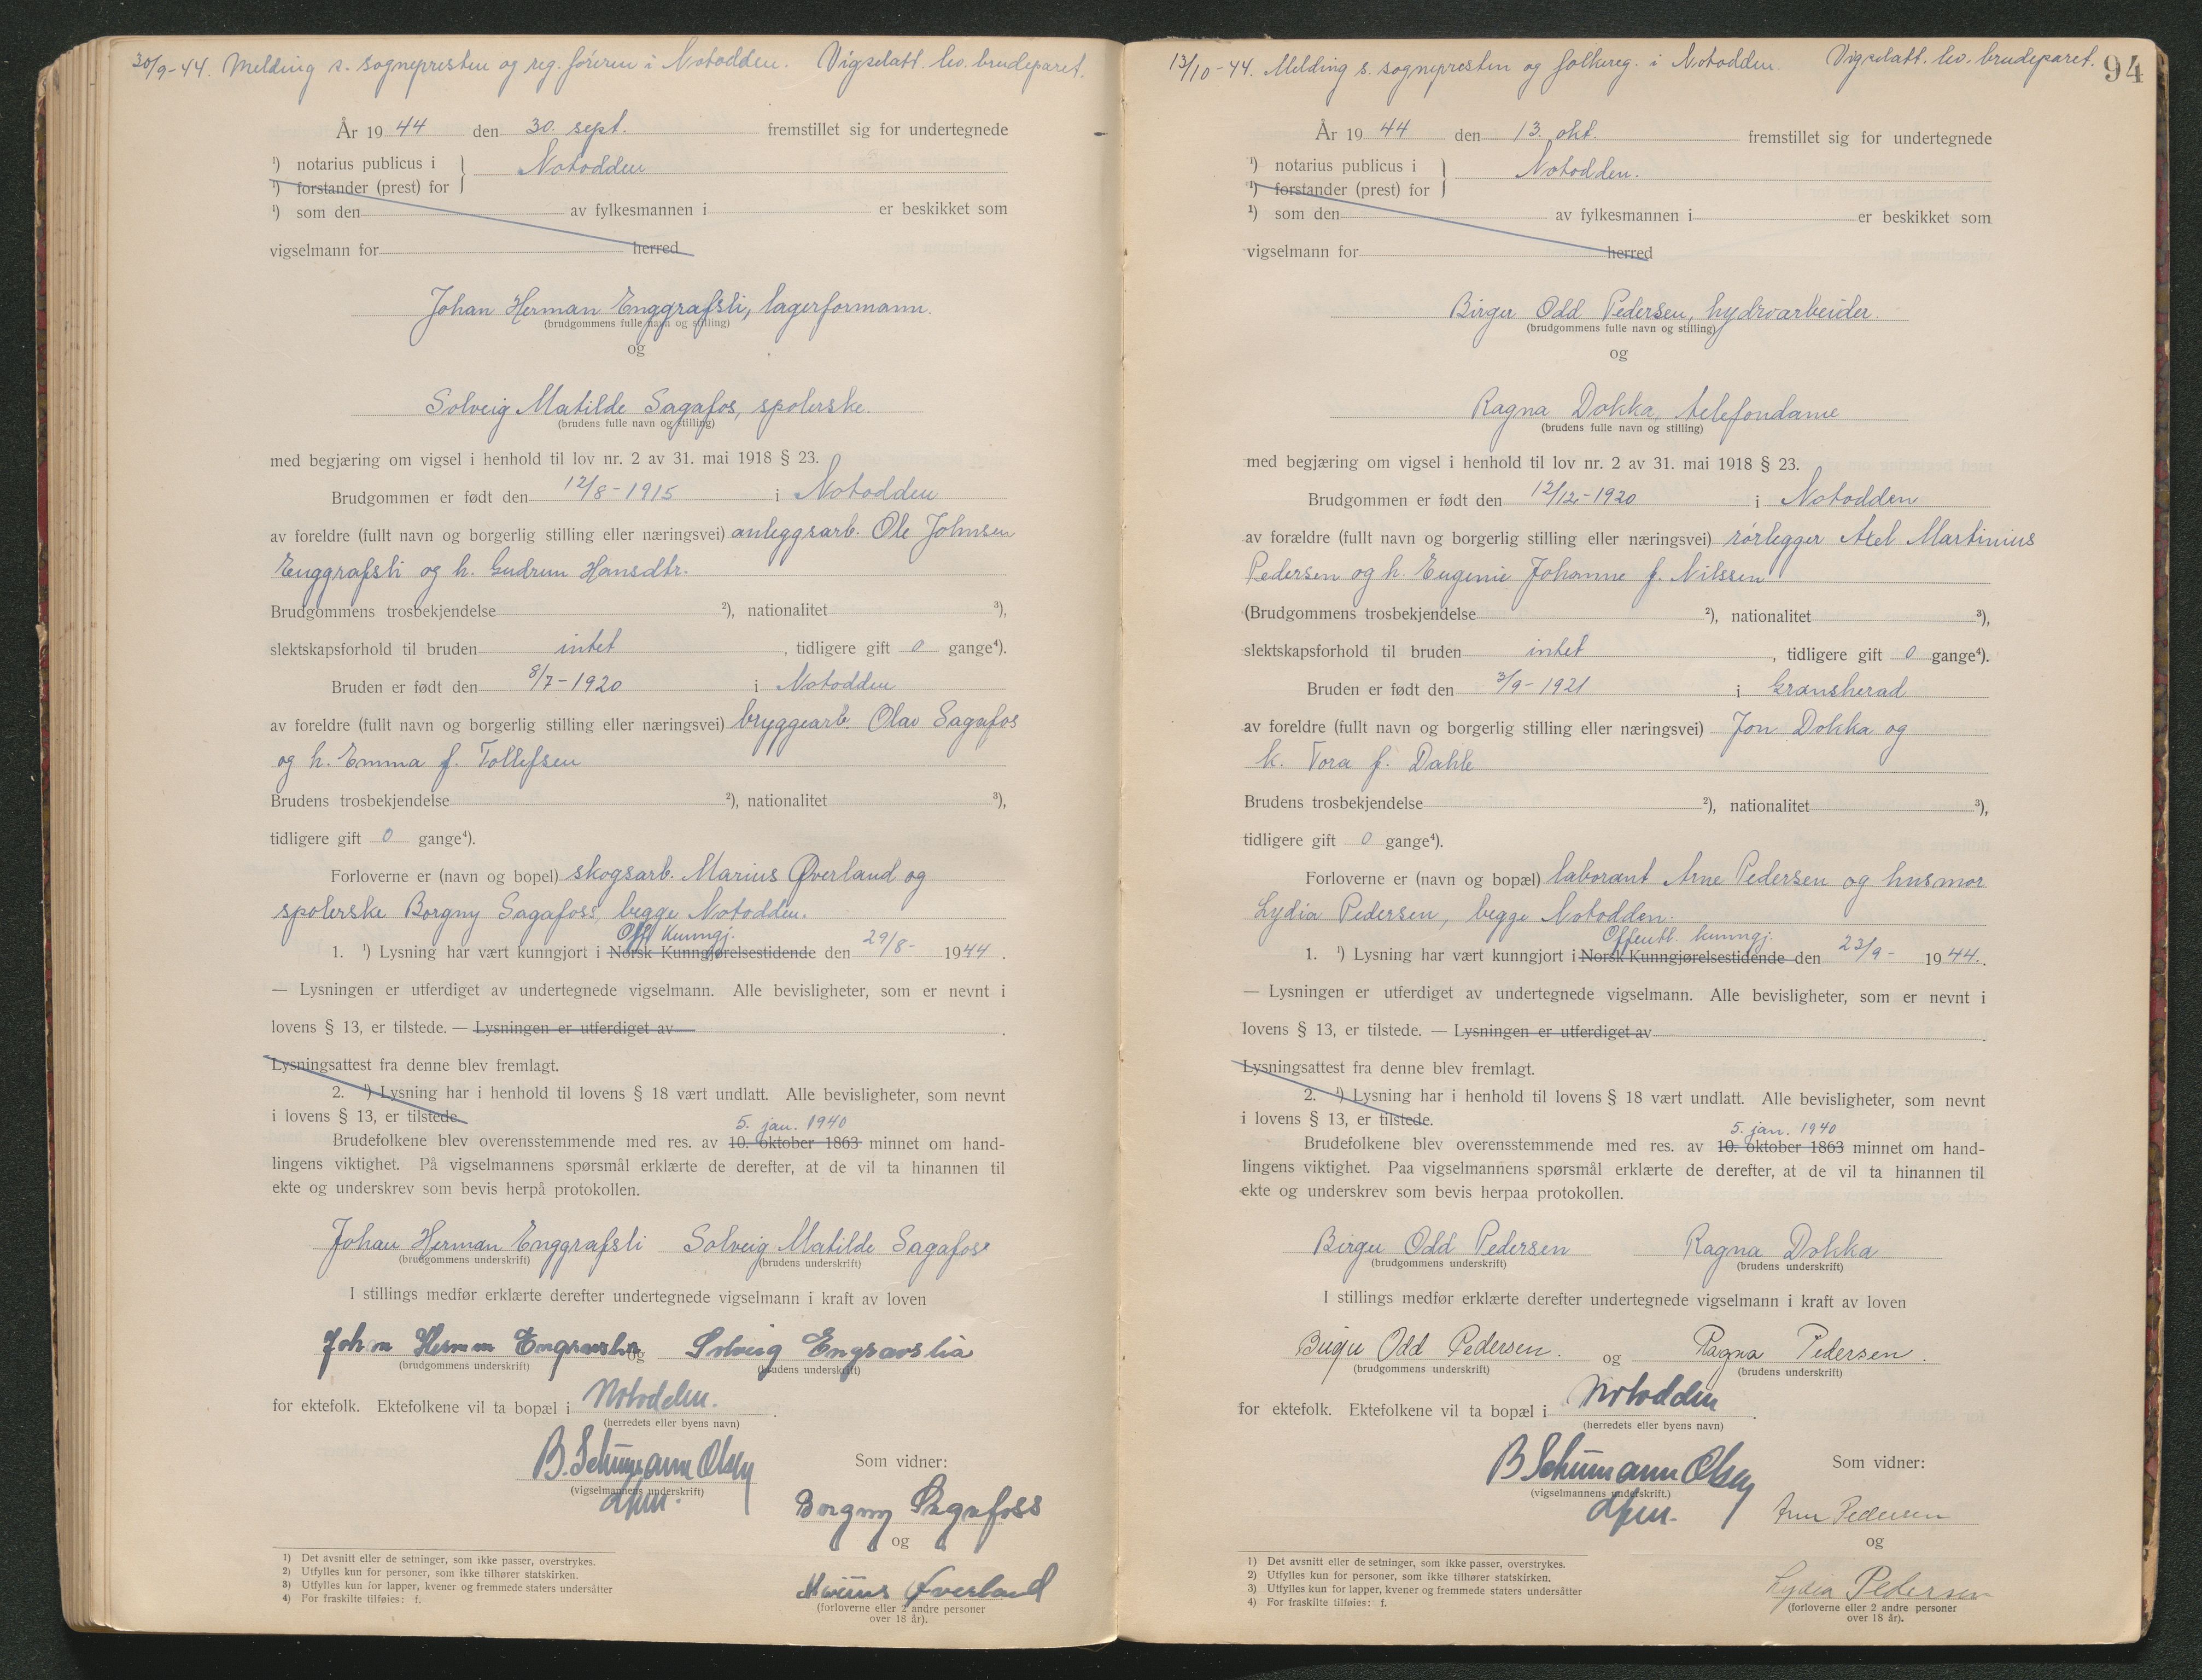 30/9-44. Melding s. sognepresten og reg.føreren i Notodden. Vigselatt. lev. brudeparet.
År 19 44 den 30. sept. fremstillet sig for undertegnede
¹) notarius publicus i } Notodden
¹) forstander (prest) for
¹) som den av fylkesmannen i er beskikket som
vigselmann for herred
Johan Herman Enggrafsli, lagerformann.
(brudgommens fulle navn og stilling)
og
Solveig Matilde Sagafos, spolerske.
(brudens fulle navn og stilling)
med begjæring om vigsel i henhold til lov nr. 2 av 31. mai 1918 § 23.
Brudgommen er født den 12/8-1915 i Notodden
av foreldre (fullt navn og borgerlig stilling eller næringsvei) anleggsarb. Ole Johnsen
Enggrafsli og h. Gudrun Hansdtr.
Brudgommens trosbekjendelse ²), nationalitet ³),
slektskapsforhold til bruden intet, tidligere gift 0 gange⁴).
Bruden er født den 8/7-1920 i Notodden
av foreldre (fullt navn og borgerlig stilling eller næringsvei) bryggearb. Olav Sagafos
og h. Emma f. Tollefsen
Brudens trosbekjendelse ²), nationalitet ³),
tidligere gift 0 gange⁴).
Forloverne er (navn og bopel) skogsarb. Marius Øverland og
spolerske Borgny Sagafoss, begge Notodden.
Off. Kunngj.
1. ¹) Lysning har vært kunngjort i Norsk Kunngjørelsestidende den 29/8- 1944.
— Lysningen er utferdiget av undertegnede vigselmann. Alle bevisligheter, som er nevnt i
lovens § 13, er tilstede. — Lysningen er utferdiget av
Lysningsattest fra denne blev fremlagt.
2. ¹) Lysning har i henhold til lovens § 18 vært undlatt. Alle bevisligheter, som nevnt
i lovens § 13, er tilstede.
5. jan. 1940
Brudefolkene blev overensstemmende med res. av 10. oktober 1863 minnet om hand-
lingens viktighet. På vigselmannens spørsmål erklærte de derefter, at de vil ta hinannen til
ekte og underskrev som bevis herpå protokollen.
Johan Herman Enggrafsli Solveig Matilde Sagafoss
(brudgommens underskrift) (brudens underskrift)
I stillings medfør erklærte derefter undertegnede vigselmann i kraft av loven
Johan Herman Engravslia og Solveig Engravslia
(brudgommens underskrift) (brudens underskrift)
for ektefolk. Ektefolkene vil ta bopæl i Notodden.
(herredets eller byens navn)
B. Schumann Olsen
(vigselmannens underskrift)
Som vidner:
Borgny Sagafoss
og
Marius Øverland
(forloverne eller 2 andre personer
over 18 år).
1) Det avsnitt eller de setninger, som ikke passer, overstrykes.
2) Utfylles kun for personer, som ikke tilhører statskirken.
3) Utfylles kun for lapper, kvener og fremmede staters undersåtter
4) For fraskilte tilføies: f.
13/10-44. Melding s. sognepresten og folkereg. i Notodden. Vigselatt. lev. brudeparet. 94
År 19 44 den 13. okt. fremstillet sig for undertegnede
¹) notarius publicus i } Notodden.
¹) forstander (prest) for
¹) som den av fylkesmannen i er beskikket som
vigselmann for herred
Birger Odd Pedersen, hydroarbeider.
(brudgommens fulle navn og stilling)
og
Ragna Dokka, telefondame
(brudens fulle navn og stilling)
med begjæring om vigsel i henhold til lov nr. 2 av 31. mai 1918 § 23.
Brudgommen er født den 12/12-1920 i Notodden
av forældre (fullt navn og borgerlig stilling eller næringsvei) rørlegger Axel Martinius
Pedersen og h. Eugenie Johanne f. Nilssen
(Brudgommens trosbekjendelse ²), nationalitet ³),
slektskapsforhold til bruden intet, tidligere gift 0 gange⁴).
Bruden er født den 3/9-1921 i Gransherad
av foreldre (fullt navn og borgerlig stilling eller næringsvei) Jon Dokka og
h. Tora f. Dahle
Brudens trosbekjendelse ²), nationalitet ³),
tidligere gift 0 gange⁴).
Forloverne er (navn og bopæl) laborant Arne Pedersen og husmor
Lydia Pedersen, begge Notodden.
Offentl. kunngj.
1. ¹) Lysning har vært kunngjort i Norsk Kunngjørelsestidende den 23/9- 1944.
— Lysningen er utferdiget av undertegnede vigselmann. Alle bevisligheter, som er nevnt i
lovens § 13, er tilstede. — Lysningen er utferdiget av
Lysningsattest fra denne blev fremlagt.
2. ¹) Lysning har i henhold til lovens § 18 vært undlatt. Alle bevisligheter, som nevnt
i lovens § 13, er tilstede.
5. jan. 1940
Brudefolkene blev overensstemmende med res. av 10. oktober 1863 minnet om hand-
lingens viktighet. Paa vigselmannens spørsmål erklærte de derefter, at de vil ta hinannen til
ekte og underskrev som bevis herpaa protokollen.
Birger Odd Pedersen Ragna Dokka
(brudgommens underskrift) (brudens underskrift)
I stillings medfør erklærte derefter undertegnede vigselmann i kraft av loven
Birger Odd Pedersen. og Ragna Pedersen.
(brudgommens underskrift) (brudens underskrift)
for ektefolk. Ektefolkene vil ta bopæl i Notodden.
(herredets eller byens navn)
B Schumann Olsen
(vigselmannens underskrift.)
Som vidner:
Arne Pedersen
og
Lydia Pedersen
(forloverne eller 2 andre personer
over 18 år).
1) Det avsnitt eller de setninger, som ikke passer, overstrykes.
2) Utfylles kun for personer, som ikke tilhører statskirken.
3) Utfylles kun for lapper, kvener og fremmede staters undersåtter
4) For fraskilte tilføies: f.